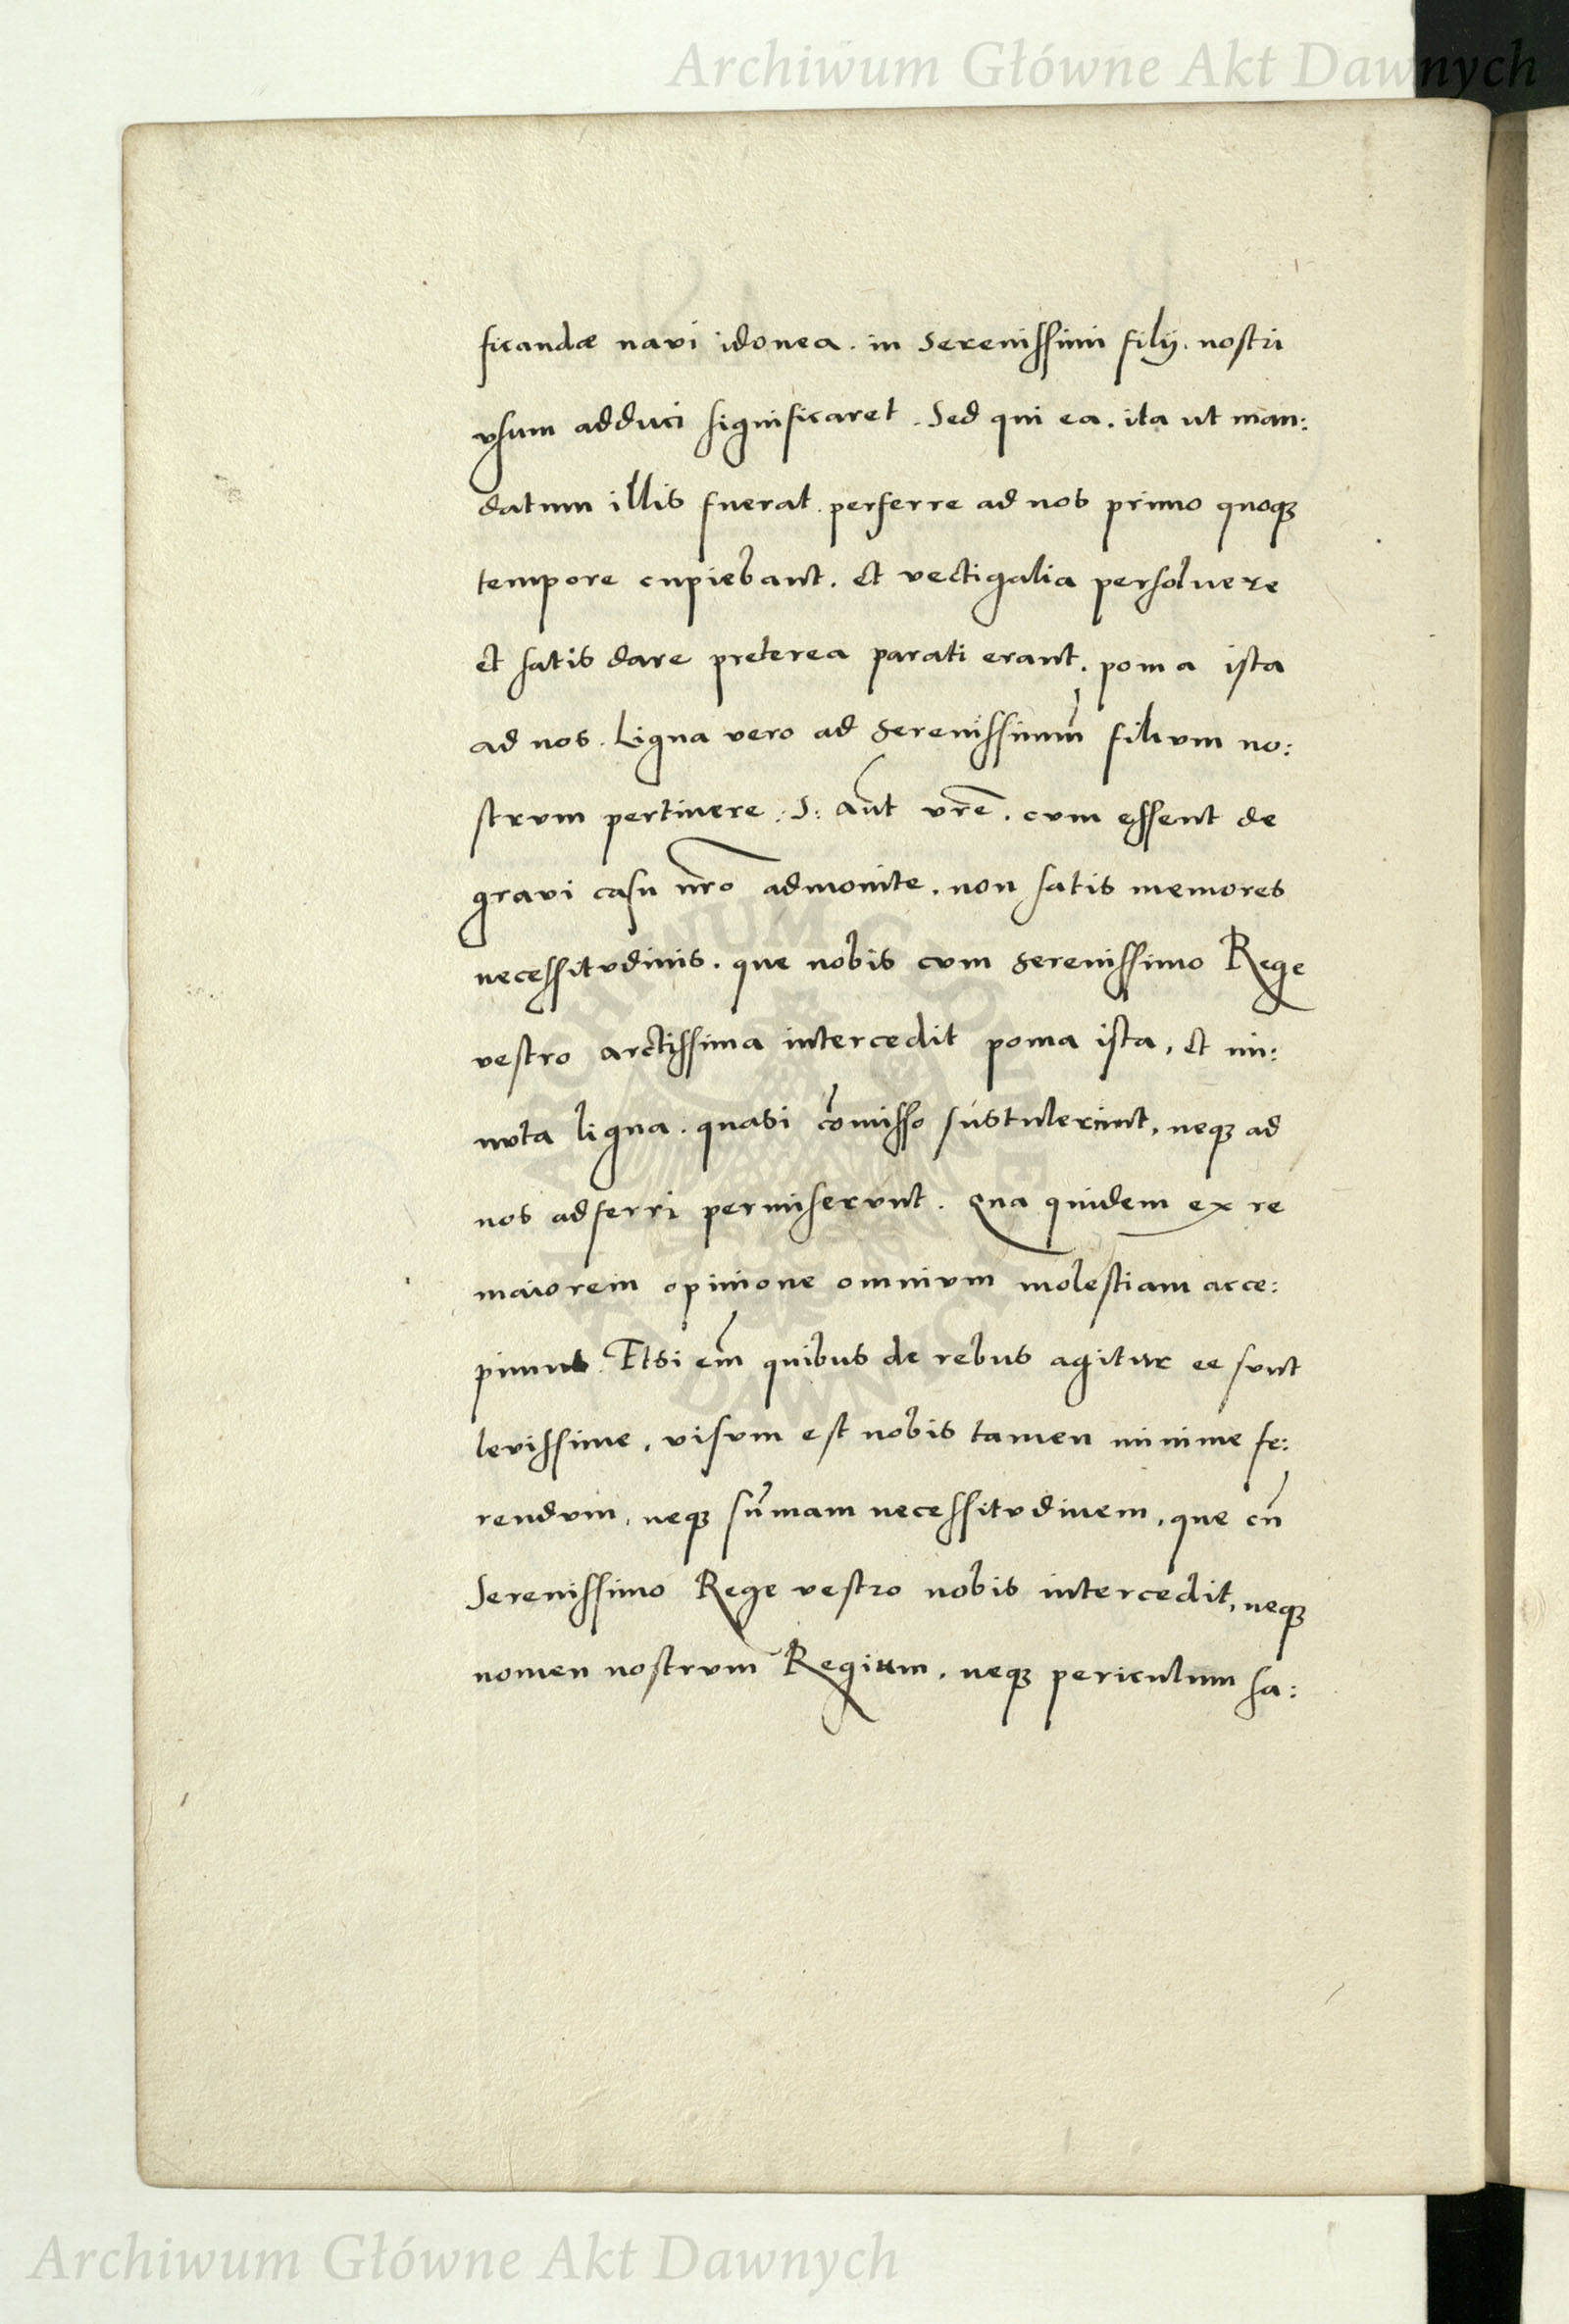 Archiwum Główne Akt Dawnych
ficandæ navi idonea. in Serenissimi filij. nostri
vsum adduci significaret. Sed qui ea. ita ut man:
datum illis fuerat. perferre ad nos primo quoqꝫ
tempore cupiebant. et vectigalia persoluere
et satis dare preterea parati erant. poma ista
ad nos. Ligna vero ad Serenissimum̃ filivm no:
strvm pertinere: S: aũt vrẽ. cvm essent de
gravi casu nrõ admonite. non satis memores
necessitvdinis. que nobis cvm Serenissimo Rege
vestro arctissima intercedit poma ista, et mi:
nvta ligna. quasi cõmisso sustulerint, neqꝫ ad
nos adferri permiservnt. Qua quidem ex re
maiorem opinione omnivm molestiam acce:
pimus. Etsi em̃ quibus de rebus agitur ee svnt
levissime, visvm est nobis tamen minime fe:
rendvm, neqꝫ sũmam necessitvdinem, que cũ
Serenissimo Rege vestro nobis intercedit, neqꝫ
nomen nostrvm Regium, neqꝫ periculum sa:
ARCHIWUM GŁÓWNE AKT DAWNYCH
Archiwum Główne Akt Dawnych